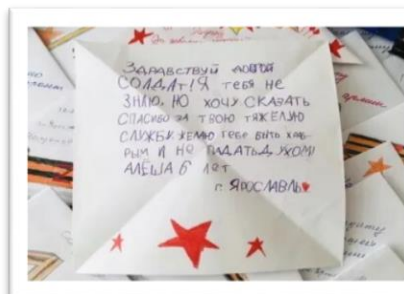 ЗДРАВСТВУЙ
СОЛДАТ! Я ТЕБЯ НЕ
ЗНАЮ, НО ХОЧУ СКАЗАТЬ
СПАСИБО ЗА ТВОЮ ТЯЖЕЛУЮ
СЛУЖБУ. ЖЕЛАЮ ТЕБЕ БЫТЬ ХАБ-
РЫМ И НЕ ПАДАТЬ ДУХОМ!
АЛЁША 6 лет
г. ЯРОСЛАВЛЬ